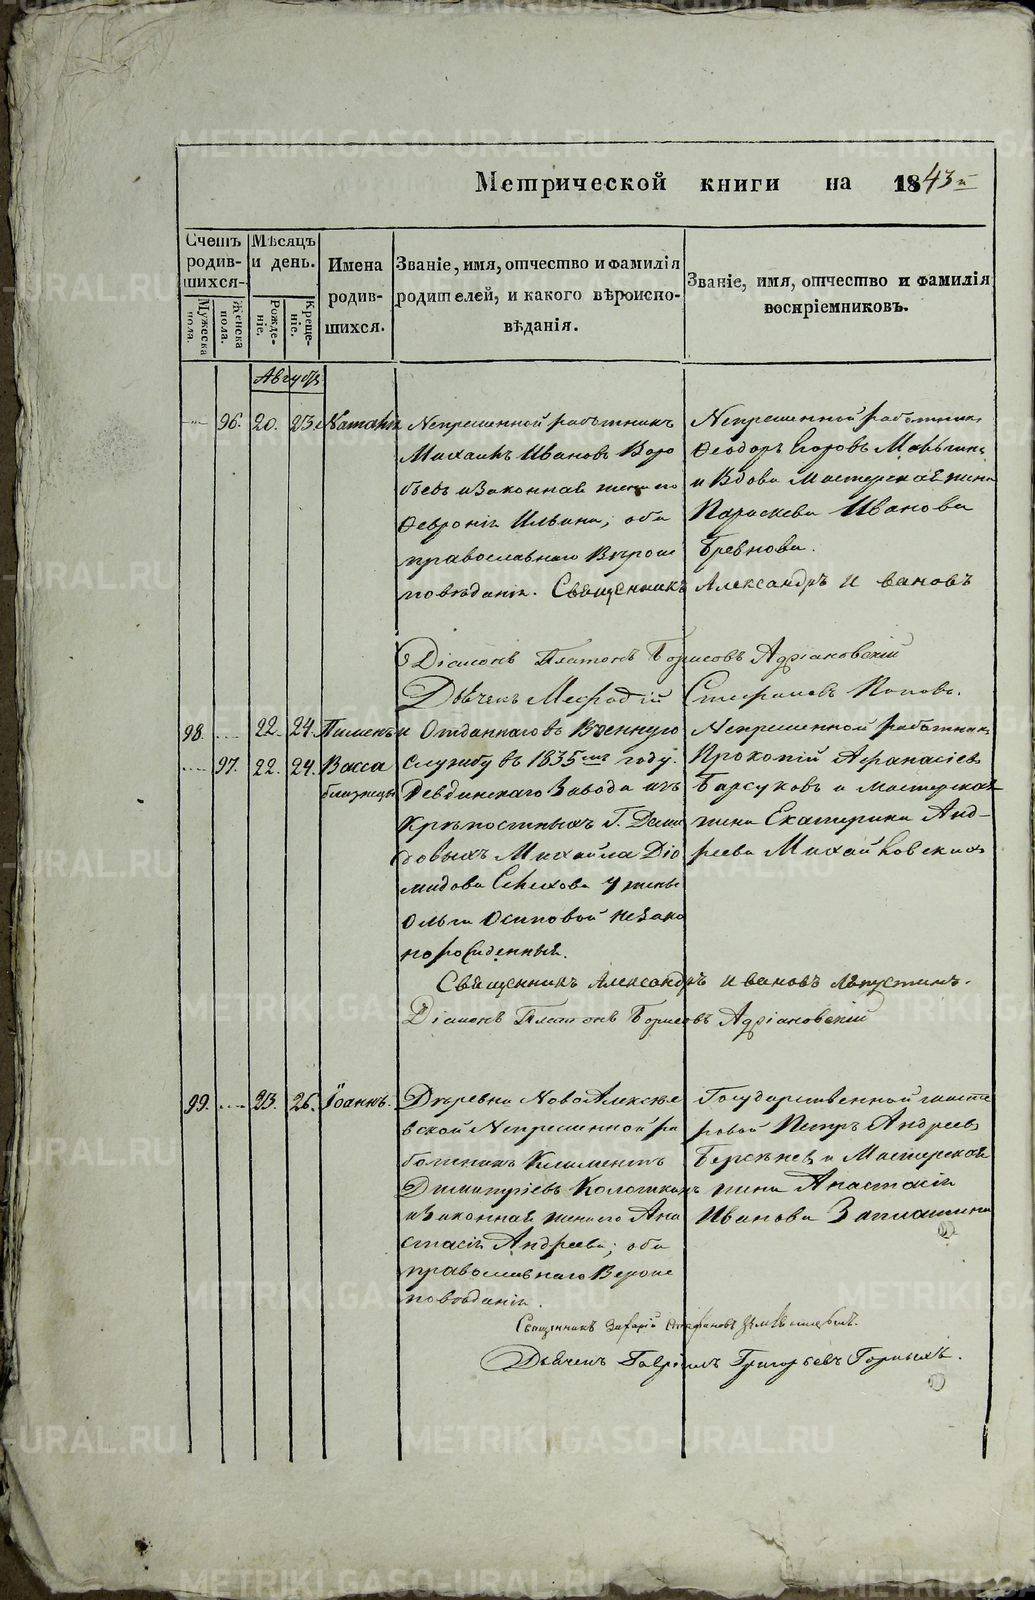 Метрической книги на 1843й
Счетъ родив-шихся-
Мужеска пола.
Женска пола.
Мѣсяцъ и день.
Рожде-ніе.
Креще-ніе.
Имена родив-шихся.
Званіе, имя, отчество и фамилія родителей, и какого вѣроиспо-вѣданія.
Званіе, имя, отчество и фамилія воспріемниковъ.
Августъ
96. 20. 23. Наталія
Непременной работникъ
Михаилъ Ивановъ Воро
бьевъ и Законная жена его
Феѵронія Ильина, оба
православнаго Вѣроис
повѣданія.
Непременной работникъ
Феодоръ Егоровъ
и Вдова Мастерская жена
Параскева Иванова
Бревнова.
Священникъ Александръ Ивановъ
Діаконъ Платонъ Борисовъ Адріановскій
Дьячекъ Меѳодій Стефановъ Поповъ.
98. 22. 24. Пименъ и
97. 22. 24. Васса
близнецы
Отданнаго въ Военную
службу въ 1835мъ году.
Ревдинскаго Завода изъ
Крѣпостныхъ Г. Деми
довыхъ Михайла Діо
мидова у жены
Ольги Осиповой незако
норожденныя.
Непременной работникъ
Прокопій Афанасіевъ
Барсуковъ и Мастерская
жена Екатерина Анд-
реева
Священникъ Александръ Ивановъ Лепустинъ.
Діаконъ Платонъ Борисовъ Адріановскій
99. 23. 26. Іоаннъ.
Деревни НовоАлексѣе
вской Непременной ра
ботникъ Климентъ
Димитріевъ
и Законная жена его Ана
стасія Андреева; оба
православнаго Вероис
поведанія.
Государственной масте
ровой Петръ Андреевъ
и Мастерская
жена Анастасія
Иванова Заплатина
Священникъ Стефановъ
Дьячекъ Гавріилъ Григорьевъ Горныхъ.
METRIKI.GASO-URAL.RU